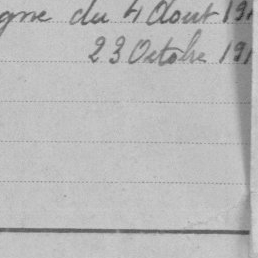 gne du 4 Aout 191
23 Octobre 191